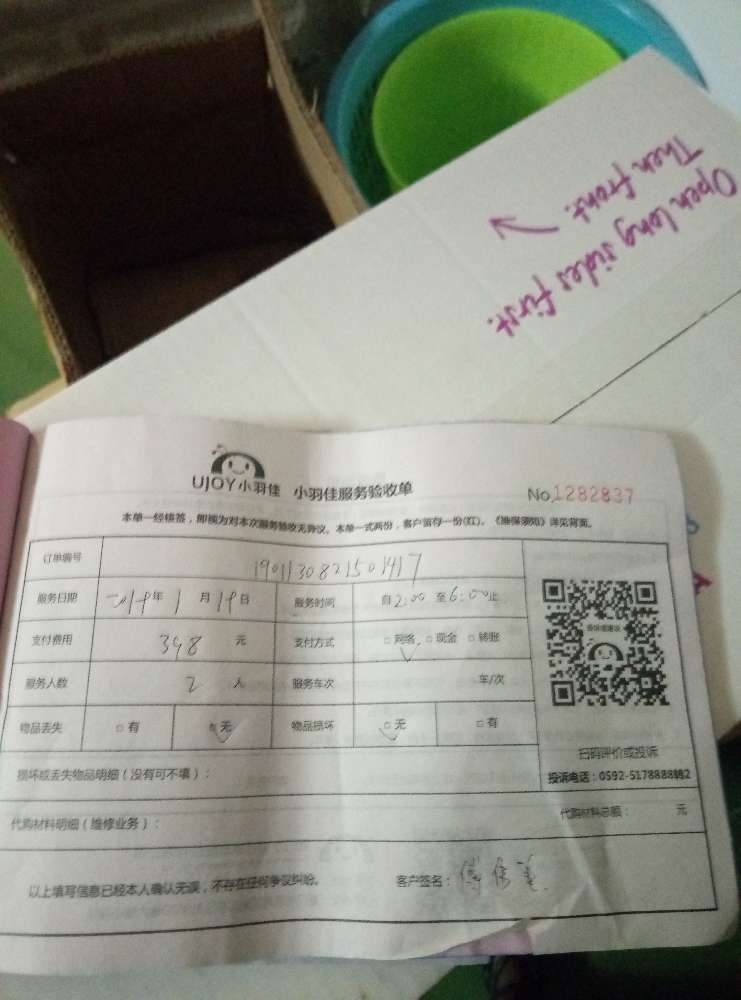 Open long sides first.
Then front.
UJOY小羽佳 小羽佳服务验收单 No.1282837
本单一经核签，即视为对本次服务验收无异议。本单一式两份，客户留存一份(红)。《维保须知》详见背面。
订单编号 1901130821501417
服务日期 2019年1月19日 服务时间 自2:00至6:00止
支付费用 398元 支付方式 □网络 □现金 □转账
服务人数 2人 服务车次 车/次
物品丢失 □有 □无 物品损坏 □无 □有
我要提建议
扫码评价或投诉
投诉电话：0592-5178888转2
损坏或丢失物品明细（没有可不填）：
代购材料明细（维修业务）： 代购材料总额： 元
以上填写信息已经本人确认无误，不存在任何争议纠纷。 客户签名：